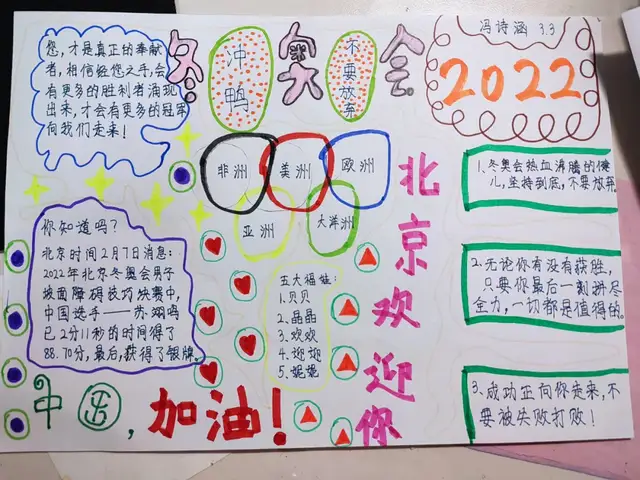 您,才是真正的奉献
者,相信经您之手,会
有更多的胜利者涌现
出来,才会有更多的冠军
向我们走来!
冬奥会
冲鸭
不要放弃
冯诗涵 3.3
2022
非洲
美洲
欧洲
亚洲
大洋洲
北京欢迎你
1.冬奥会热血沸腾的健
儿,坚持到底,不要放弃
2.无论你有没有获胜,
只要你最后一刻拼尽
全力,一切都是值得的。
3.成功正向你走来,不
要被失败打败!
你知道吗?
北京时间2月7日消息:
2022年北京冬奥会男子
坡面障碍技巧决赛中,
中国选手——苏翊鸣
已2分11秒的时间得了
88.70分,最后,获得了银牌。
五大福娃:
1.贝贝
2.晶晶
3.欢欢
4.迎迎
5.妮妮
中国,加油!